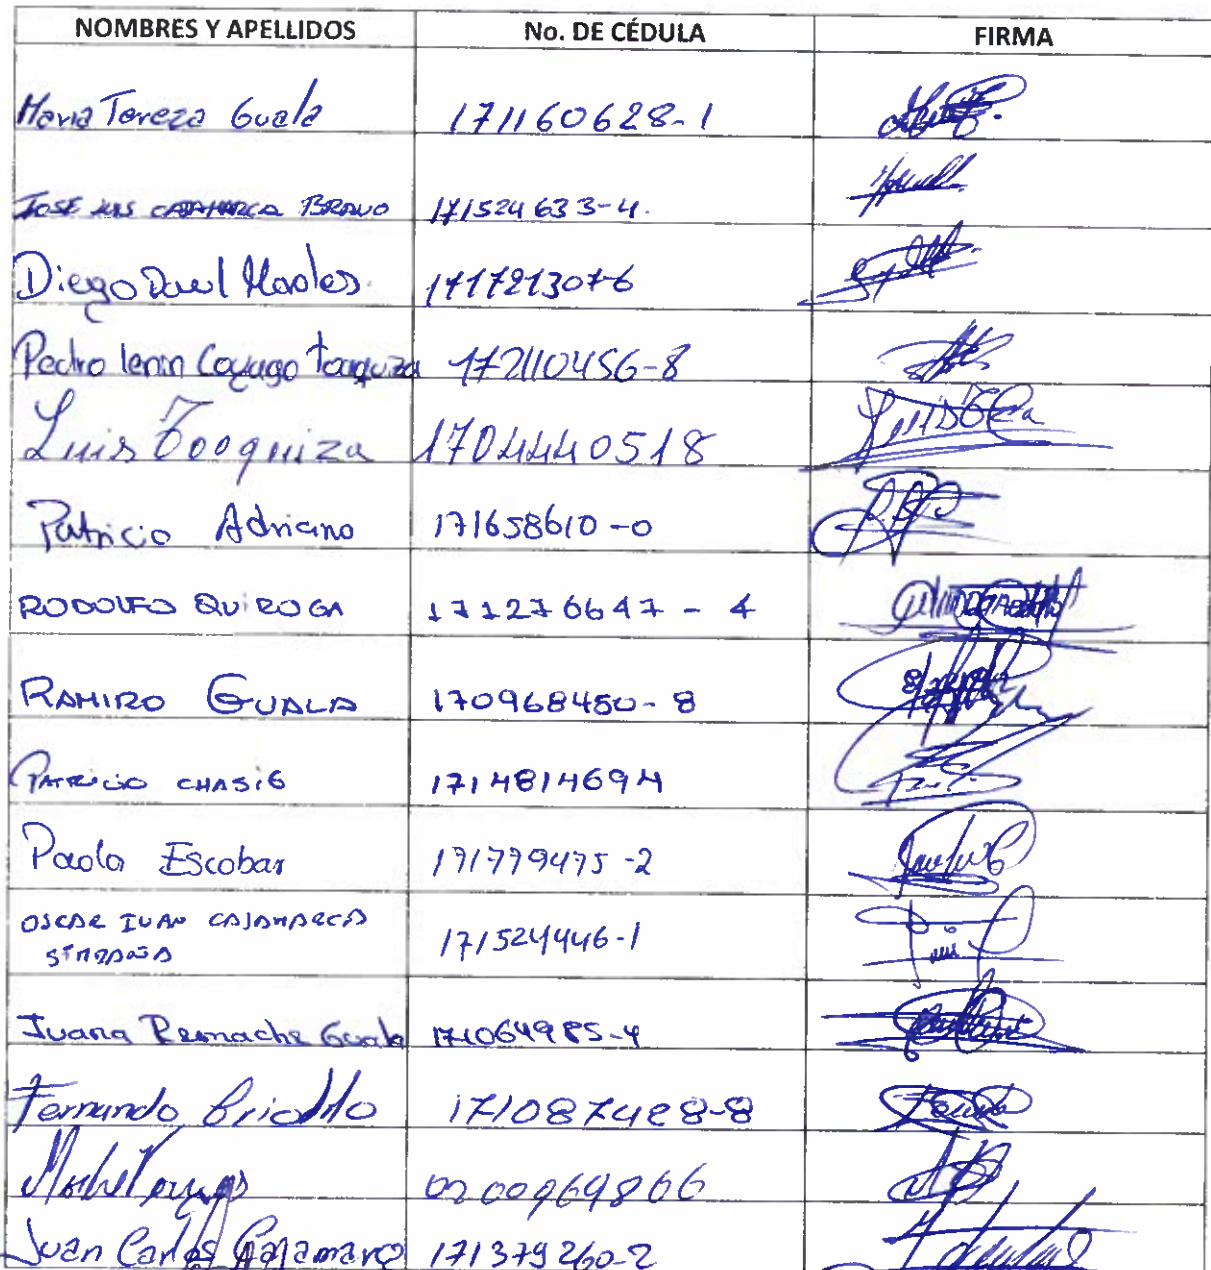 NOMBRES Y APELLIDOS No. DE CÉDULA FIRMA
Maria Tereza Guala 171160628-1
JOSÉ LUIS CAJAMARCA BRAVO 171524633-4.
Diego Raul Morales 1717213076
Pedro lenin Cayugo Toaquiza 172110456-8
Luis Tooquiza 1704440518 LUISTOCa
Patricio Adriano 171658610-0
RODOLFO QUIROGA 171276647-4
RAMIRO GUALA 170968450-8
PATRICIO CHASIG 1714814694
Paola Escobar 171779475-2
OSCAR IVAN CAJAMARCA 171524446-1
SIMBAÑA
Juana Remache Guala 171064985-4
Fernando Criollo 171087428-8
0200969866
Juan Carlos Cajamarca 171379260-2